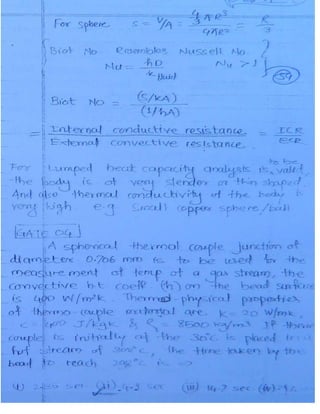 For sphere s = V/A = (4/3 πR³)/(4πR²) = R/3
Biot No. Resembles Nussell No.
Nu = hD/k fluid Nu > 1
59
Biot No = (s/kA)/(1/hA)
= Internal conductive resistance / External convective resistance = ICR/ECR
For Lumped heat capacity analysis to be valid,
the body is of very slender or thin shaped,
And also thermal conductivity of the body is
very high e.g. Small copper sphere/ball
GATE 04
A spherical thermal couple junction of
diameter 0.706 mm is to be used for the
measurement of temp of a gas stream, the
convective ht coeff (h) on the bead surface
is 400 W/m²K. Thermo-physical properties
of thermo-couple material are. K = 20 W/mK,
c = 400 J/kgK & = 8500 kg/m³ If thermo
couple is initially at the 30°C is placed in a
hot stream of 300°C, the time taken by the
bead to reach 298°C is ⇒